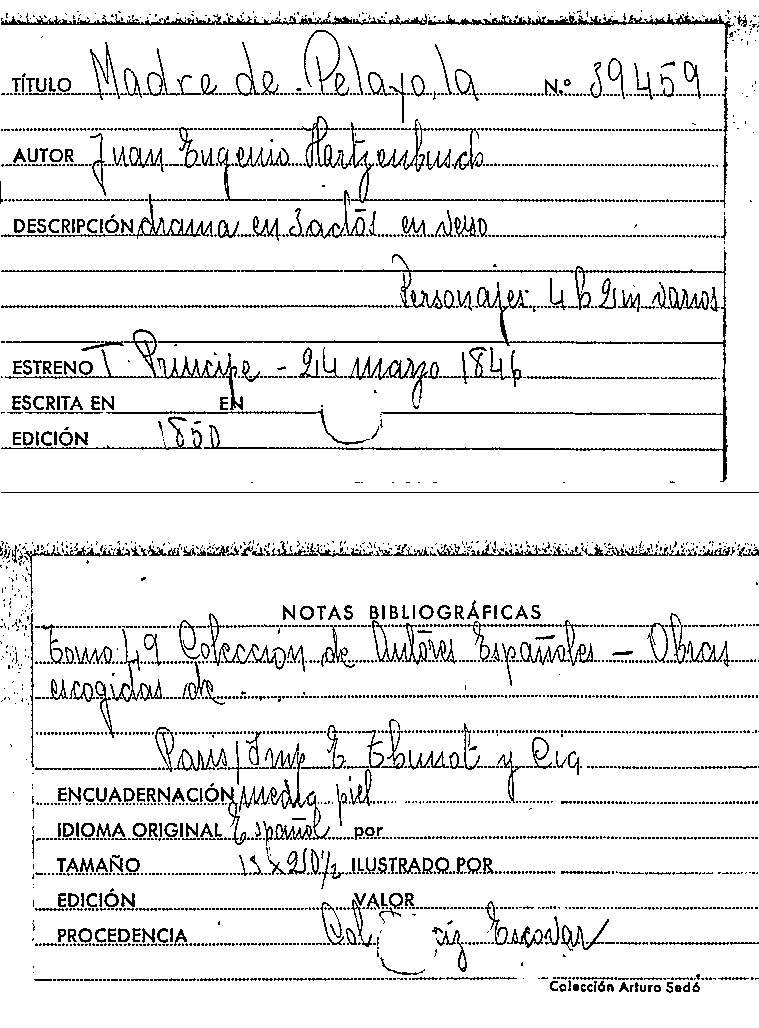 TÍTULO Madre de Pelayo, la N.º 39459
AUTOR Juan Eugenio Hartzenbusch
DESCRIPCIÓN drama en 3 actos en verso
Personajes, 4 h 2 m varios
ESTRENO T. Principe - 24 marzo 1846
ESCRITA EN EN
EDICIÓN 1850
NOTAS BIBLIOGRÁFICAS
Tomo 49 Colección de Autores Españoles - Obras
escogidas de ....
Paris/Imp E y Cia
ENCUADERNACIÓN media piel
IDIOMA ORIGINAL Español por
TAMAÑO ILUSTRADO POR
EDICIÓN VALOR
PROCEDENCIA Col. Escovar
Colección Arturo Sedó